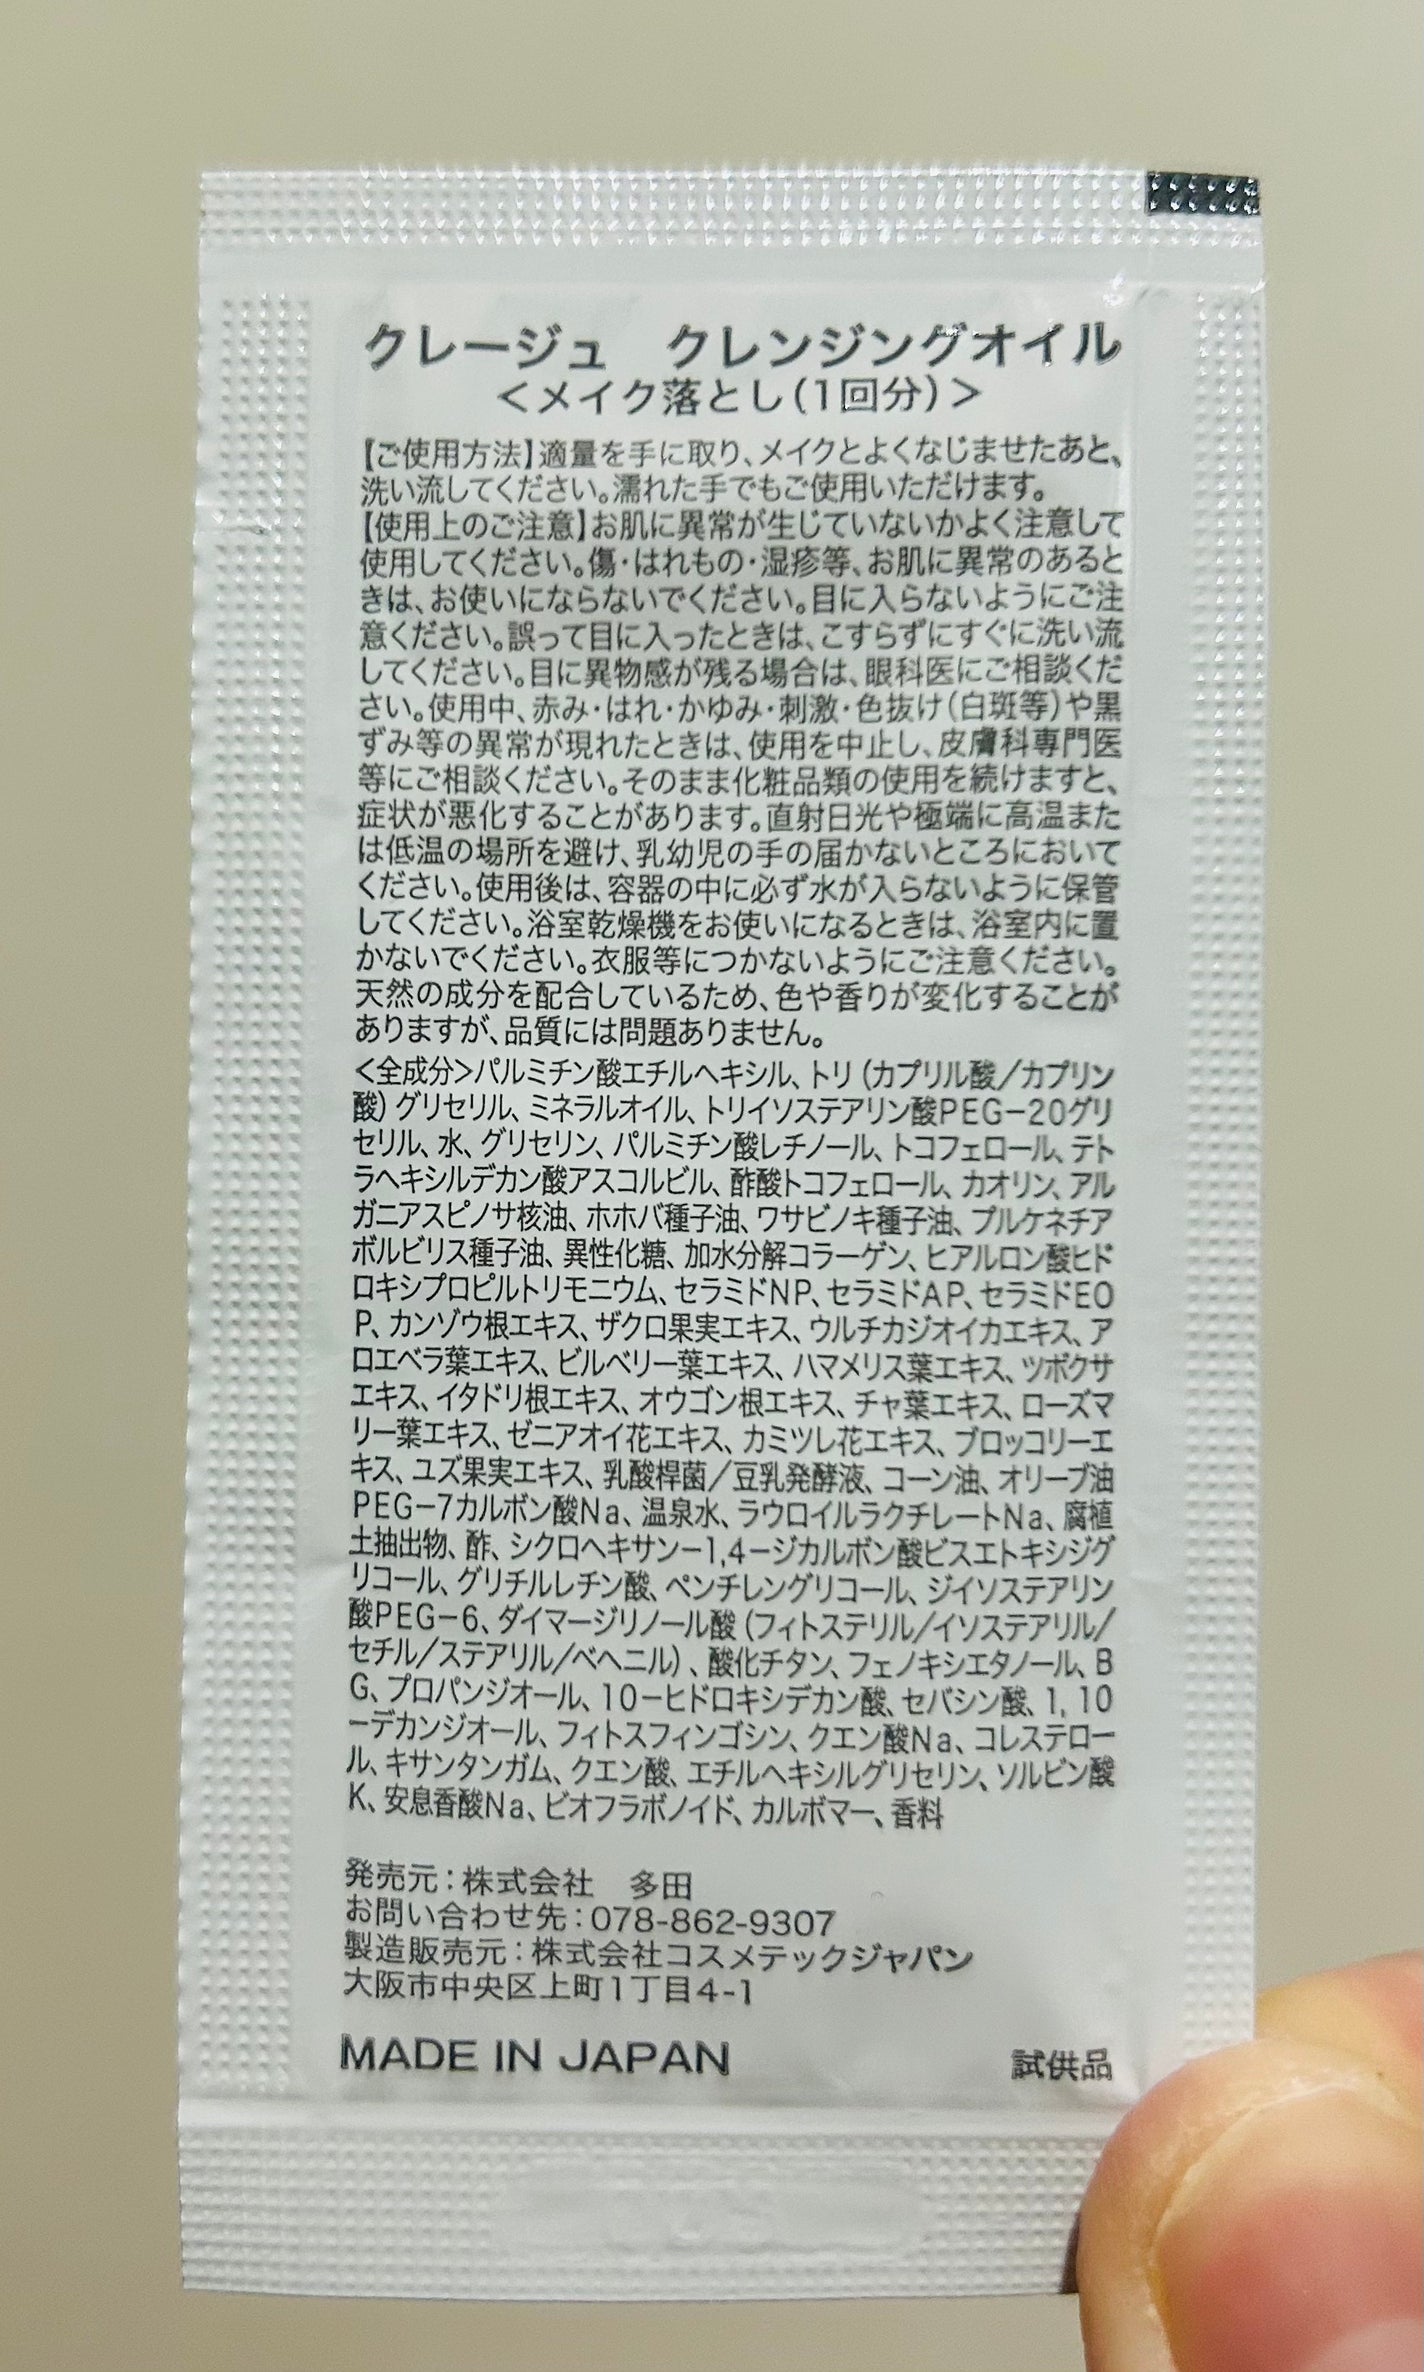 クレージュ　クレンジングオイル
＜メイク落とし(1回分)＞
【ご使用方法】適量を手に取り、メイクとよくなじませたあと、
洗い流してください。濡れた手でもご使用いただけます。
【使用上のご注意】お肌に異常が生じていないかよく注意して
使用してください。傷・はれもの・湿疹等、お肌に異常のあると
きは、お使いにならないでください。目に入らないようにご注
意ください。誤って目に入ったときは、こすらずにすぐに洗い流
してください。目に異物感が残る場合は、眼科医にご相談くだ
さい。使用中、赤み・はれ・かゆみ・刺激・色抜け(白斑等)や黒
ずみ等の異常が現れたときは、使用を中止し、皮膚科専門医
等にご相談ください。そのまま化粧品類の使用を続けますと、
症状が悪化することがあります。直射日光や極端に高温また
は低温の場所を避け、乳幼児の手の届かないところにおいて
ください。使用後は、容器の中に必ず水が入らないように保管
してください。浴室乾燥機をお使いになるときは、浴室内に置
かないでください。衣服等につかないようにご注意ください。
天然の成分を配合しているため、色や香りが変化することが
ありますが、品質には問題ありません。
＜全成分＞パルミチン酸エチルヘキシル、トリ(カプリル酸／カプリン
酸)グリセリル、ミネラルオイル、トリイソステアリン酸PEG－20グリ
セリル、水、グリセリン、パルミチン酸レチノール、トコフェロール、テト
ラヘキシルデカン酸アスコルビル、酢酸トコフェロール、カオリン、アル
ガニアスピノサ核油、ホホバ種子油、ワサビノキ種子油、プルケネチア
ボルビリス種子油、異性化糖、加水分解コラーゲン、ヒアルロン酸ヒド
ロキシプロピルトリモニウム、セラミドNP、セラミドAP、セラミドEO
P、カンゾウ根エキス、ザクロ果実エキス、ウルチカジオイカエキス、ア
ロエベラ葉エキス、ビルベリー葉エキス、ハマメリス葉エキス、ツボクサ
エキス、イタドリ根エキス、オウゴン根エキス、チャ葉エキス、ローズマ
リー葉エキス、ゼニアオイ花エキス、カミツレ花エキス、ブロッコリーエ
キス、ユズ果実エキス、乳酸桿菌／豆乳発酵液、コーン油、オリーブ油
PEG－7カルボン酸Na、温泉水、ラウロイルラクチレートNa、腐植
土抽出物、酢、シクロヘキサン－1,4－ジカルボン酸ビスエトキシジグ
リコール、グリチルレチン酸、ペンチレングリコール、ジイソステアリン
酸PEG－6、ダイマージリノール酸(フィトステリル／イソステアリル／
セチル／ステアリル／ベヘニル)、酸化チタン、フェノキシエタノール、B
G、プロパンジオール、10－ヒドロキシデカン酸、セバシン酸、1,10
－デカンジオール、フィトスフィンゴシン、クエン酸Na、コレステロー
ル、キサンタンガム、クエン酸、エチルヘキシルグリセリン、ソルビン酸
K、安息香酸Na、ビオフラボノイド、カルボマー、香料
発売元：株式会社　多田
お問い合わせ先：078-862-9307
製造販売元：株式会社コスメテックジャパン
大阪市中央区上町1丁目4-1
MADE IN JAPAN　試供品